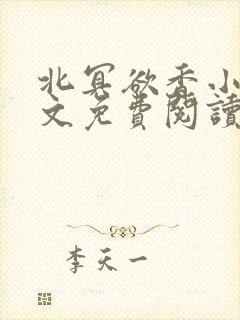 北冥欲香小
文免費閱讀
李天一